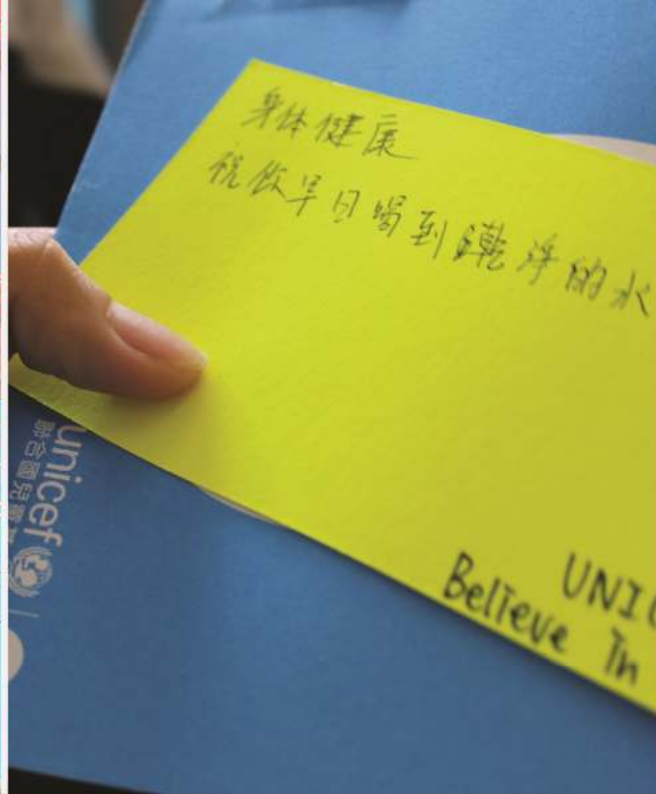 身体健康
祝你早日喝到乾淨的水
UNIC
Believe in
unicef
聯合國兒童